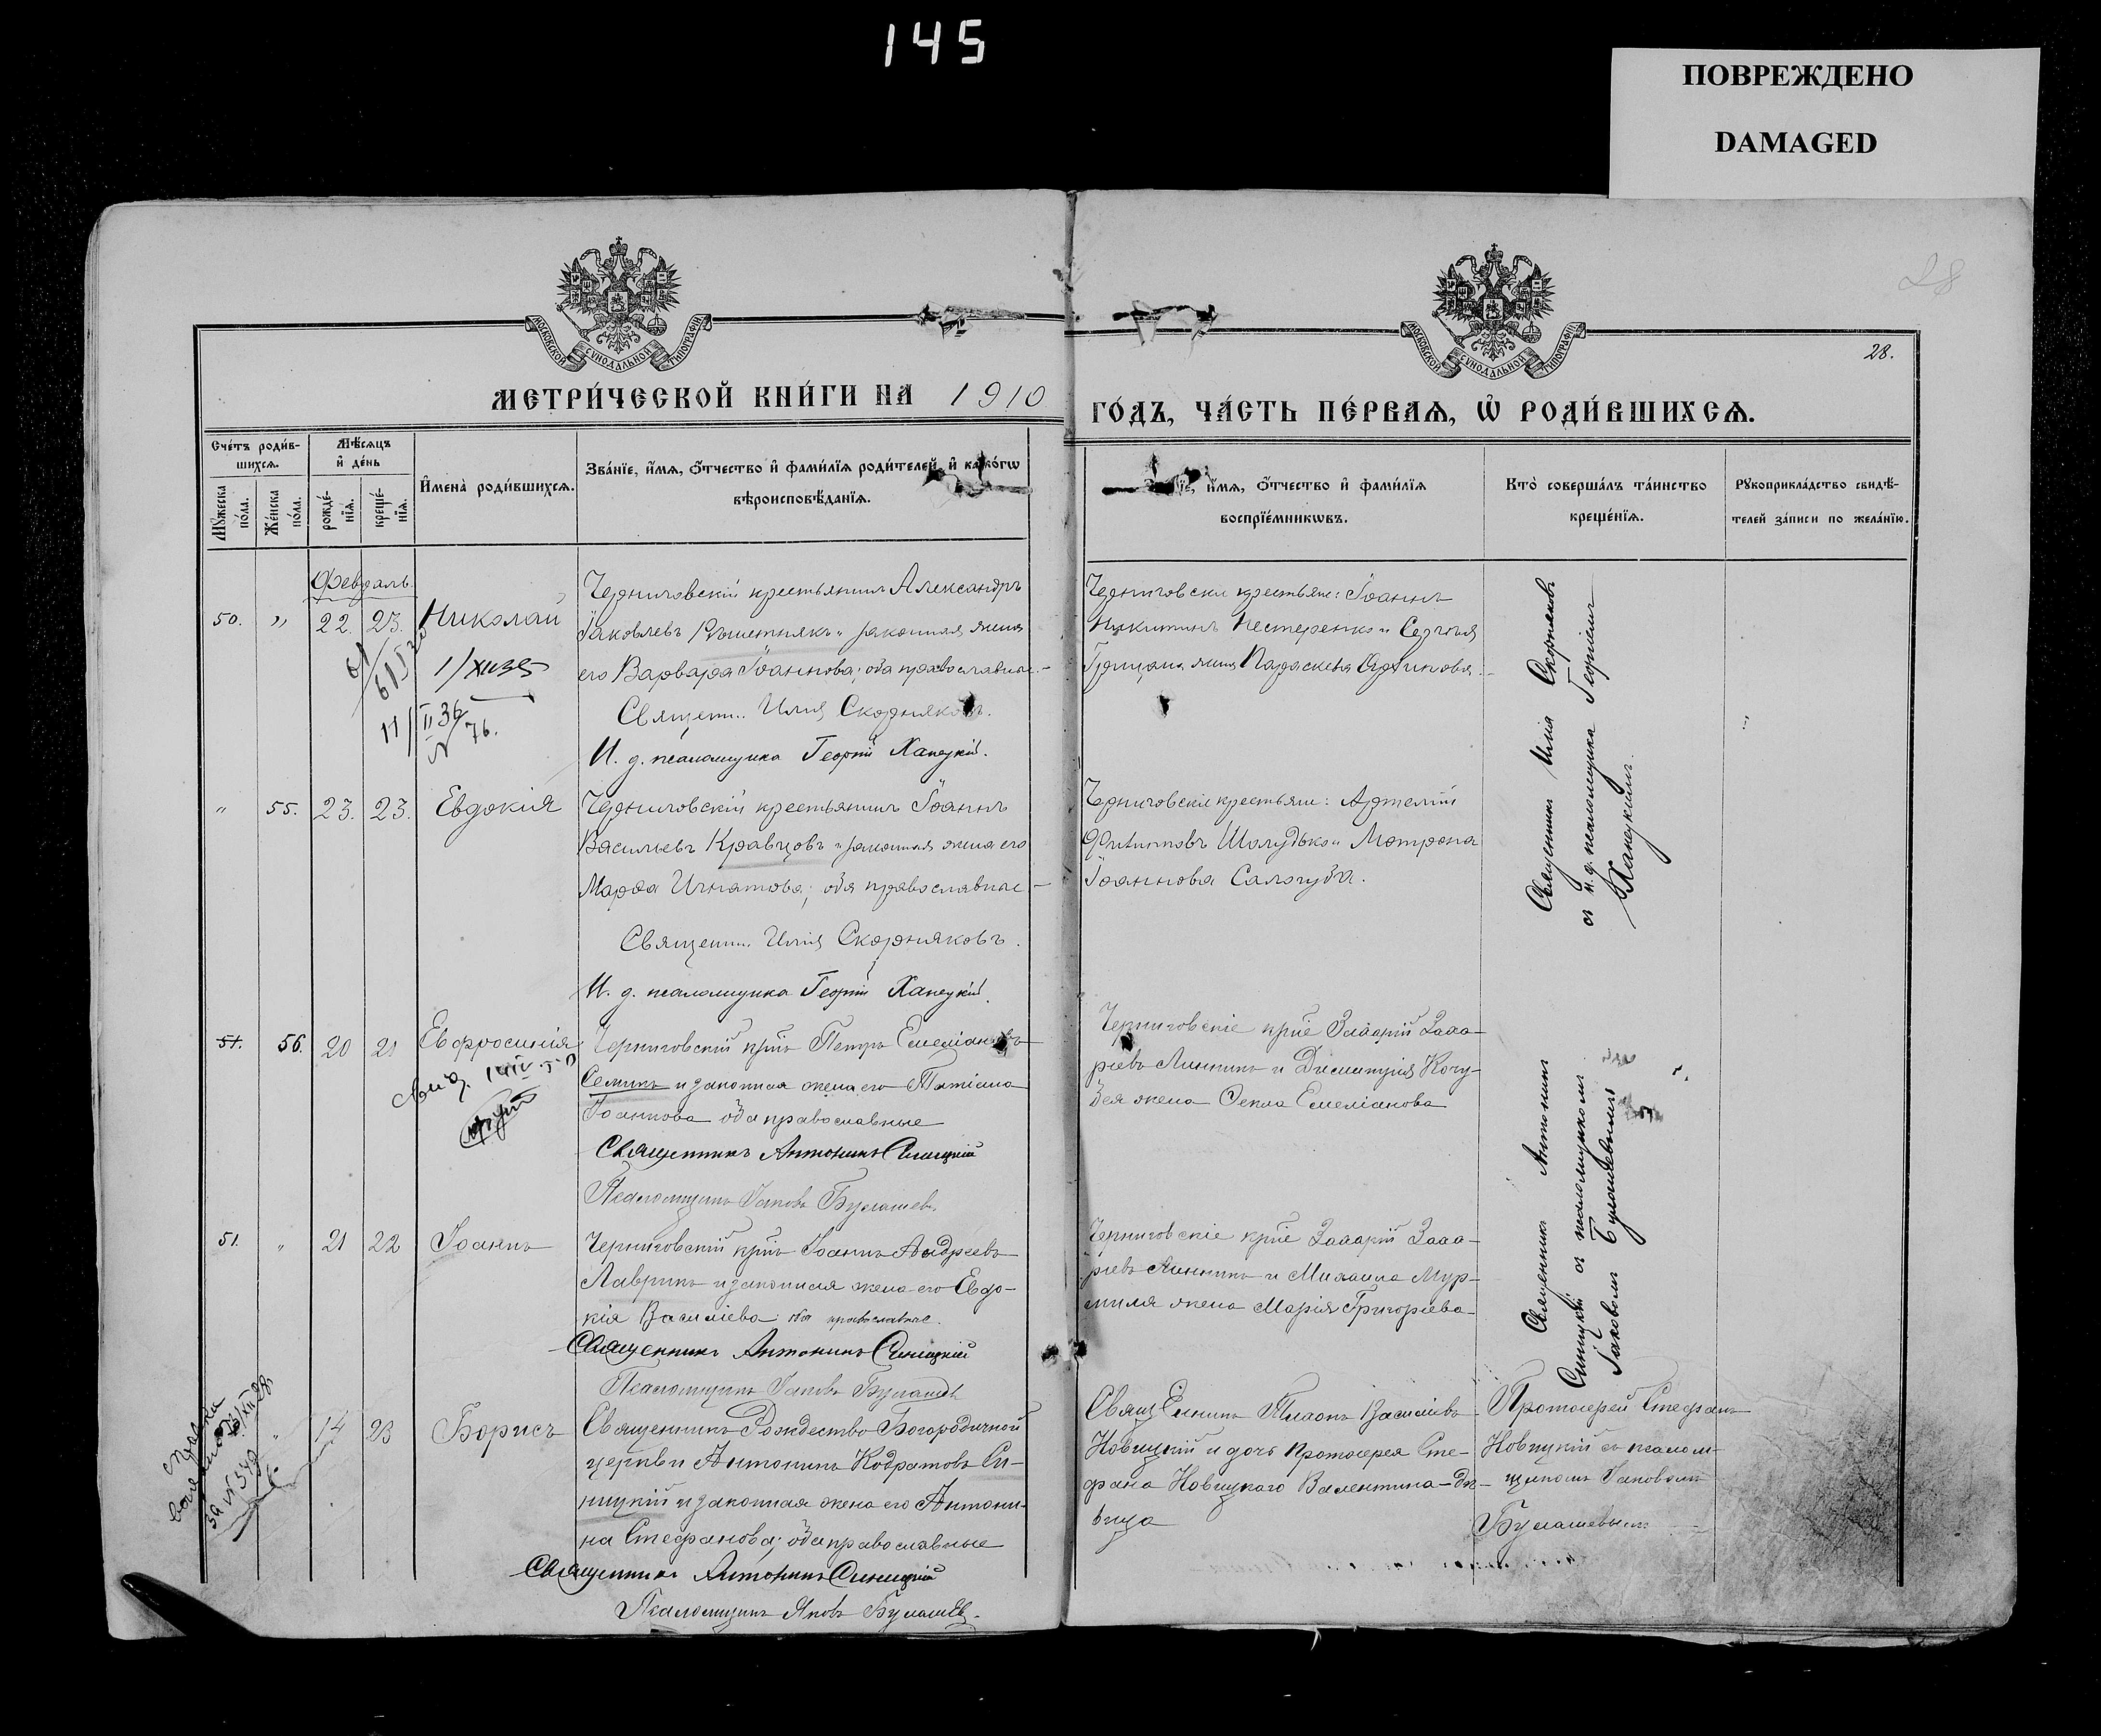 145
ПОВРЕЖДЕНО
DAMAGED
28
МОСКОВСКОЙ СУНОДАЛЬНОЙ ТИПОГРАФІИ
МОСКОВСКОЙ СУНОДАЛЬНОЙ ТИПОГРАФІИ
28.
МЕТРИ́ЧЕСКОЙ КНИ́ГИ НА 1910
ГО́ДЪ, ЧА́СТЬ ПЕ́РВАѦ, Ѽ РОДИ́ВШИХСѦ.
Сче́тъ роди́в-
шихсѧ.
Мꙋ́жеска по́ла.
Же́нска по́ла.
Мѣ́сѧцъ
и҆ де́нь
рожде́-
нїѧ.
креще́-
нїѧ.
И҆мена̀ роди́вшихсѧ.
Зва́нїе, и҆́мѧ, ѻ҆́тчество и҆ фами́лїѧ роди́телей, и҆ како́гѡ
вѣроисповѣ́данїѧ.
и҆́мѧ, ѻ҆́тчество и҆ фами́лїѧ
воспрїе́мникѡвъ.
Кто̀ соверша́лъ та́инство
креще́нїѧ.
Рꙋкоприкла́дство свидѣ́-
телей за́писи по жела́нїю.
Февраль.
50. „ 22. 23. Николай
Черниговскій крестьянинъ Александръ
Іаковлевъ Рѣшетнякъ и законная жена
его Варвара Іоаннова; оба православные.
Священ. Илія Скорняковъ.
И. д. псаломщика Георгій Ханецкій.
Черниговскіе крестьяне: Іоаннъ
Никитинъ Нестеренко и Сергѣя
жена Параскева
Священникъ Илія Скорняковъ
съ и. д. псаломщика Георгіемъ
Ханецкимъ.
11/II 36
N 76.
„ 55. 23. 23. Евдокія
Черниговскій крестьянинъ Іоаннъ
Васильевъ Кравцовъ и законная жена его
Марѳа Игнатова; оба православные
Священ. Илія Скорняковъ.
И. д. псаломщика Георгій Ханецкій.
Черниговскіе крестьяне: Артемій
Филиповъ Шолудько и Матрона
Іоаннова Салогуба.
51. 56. 20 21 Евфросинія
Черниговскій кр̃нъ Петръ Емеліановъ
Семикъ и законная жена его Татіана
Іоаннова оба православные
Священникъ Антонинъ Синицкій
Псаломщикъ Іаковъ Булашевъ.
Черниговскіе кр̃не Захарій Заха-
ріевъ Линникъ и Димитрія Кочу-
бея жена Ѳекла Емеліанова
Священникъ Антонинъ
Синицкій съ псаломщикомъ
Іаковомъ Булашевымъ
51. „ 21 22 Іоаннъ
Черниговскій кр̃нъ Іоаннъ Андреевъ
Лавринъ и законная жена его Евдо-
кія Василіева оба православные.
Священникъ Антонинъ Синицкій
Псаломщикъ Іаковъ Булашевъ
Черниговскіе кр̃не Захарій Заха-
ріевъ Линникъ и Михаила Мур-
миля жена Марія Григоріева
„ 14 23 Борисъ
Священникъ Рождество-Богородичной
церкви Антонинъ Кодратовъ Си-
ницкій и законная жена его Антони-
на Стефанова; оба православные
Священникъ Антонинъ Синицкій
Псаломщикъ Яковъ Булашевъ.
Священникъ Тихонъ Василіевъ
Новицкій и дочь Протоіерея Сте-
фана Новицкаго Валентина-дѣ-
вица
Протоіерей Стефанъ
Новицкій съ псалом-
щикомъ Іаковомъ
Булашевымъ